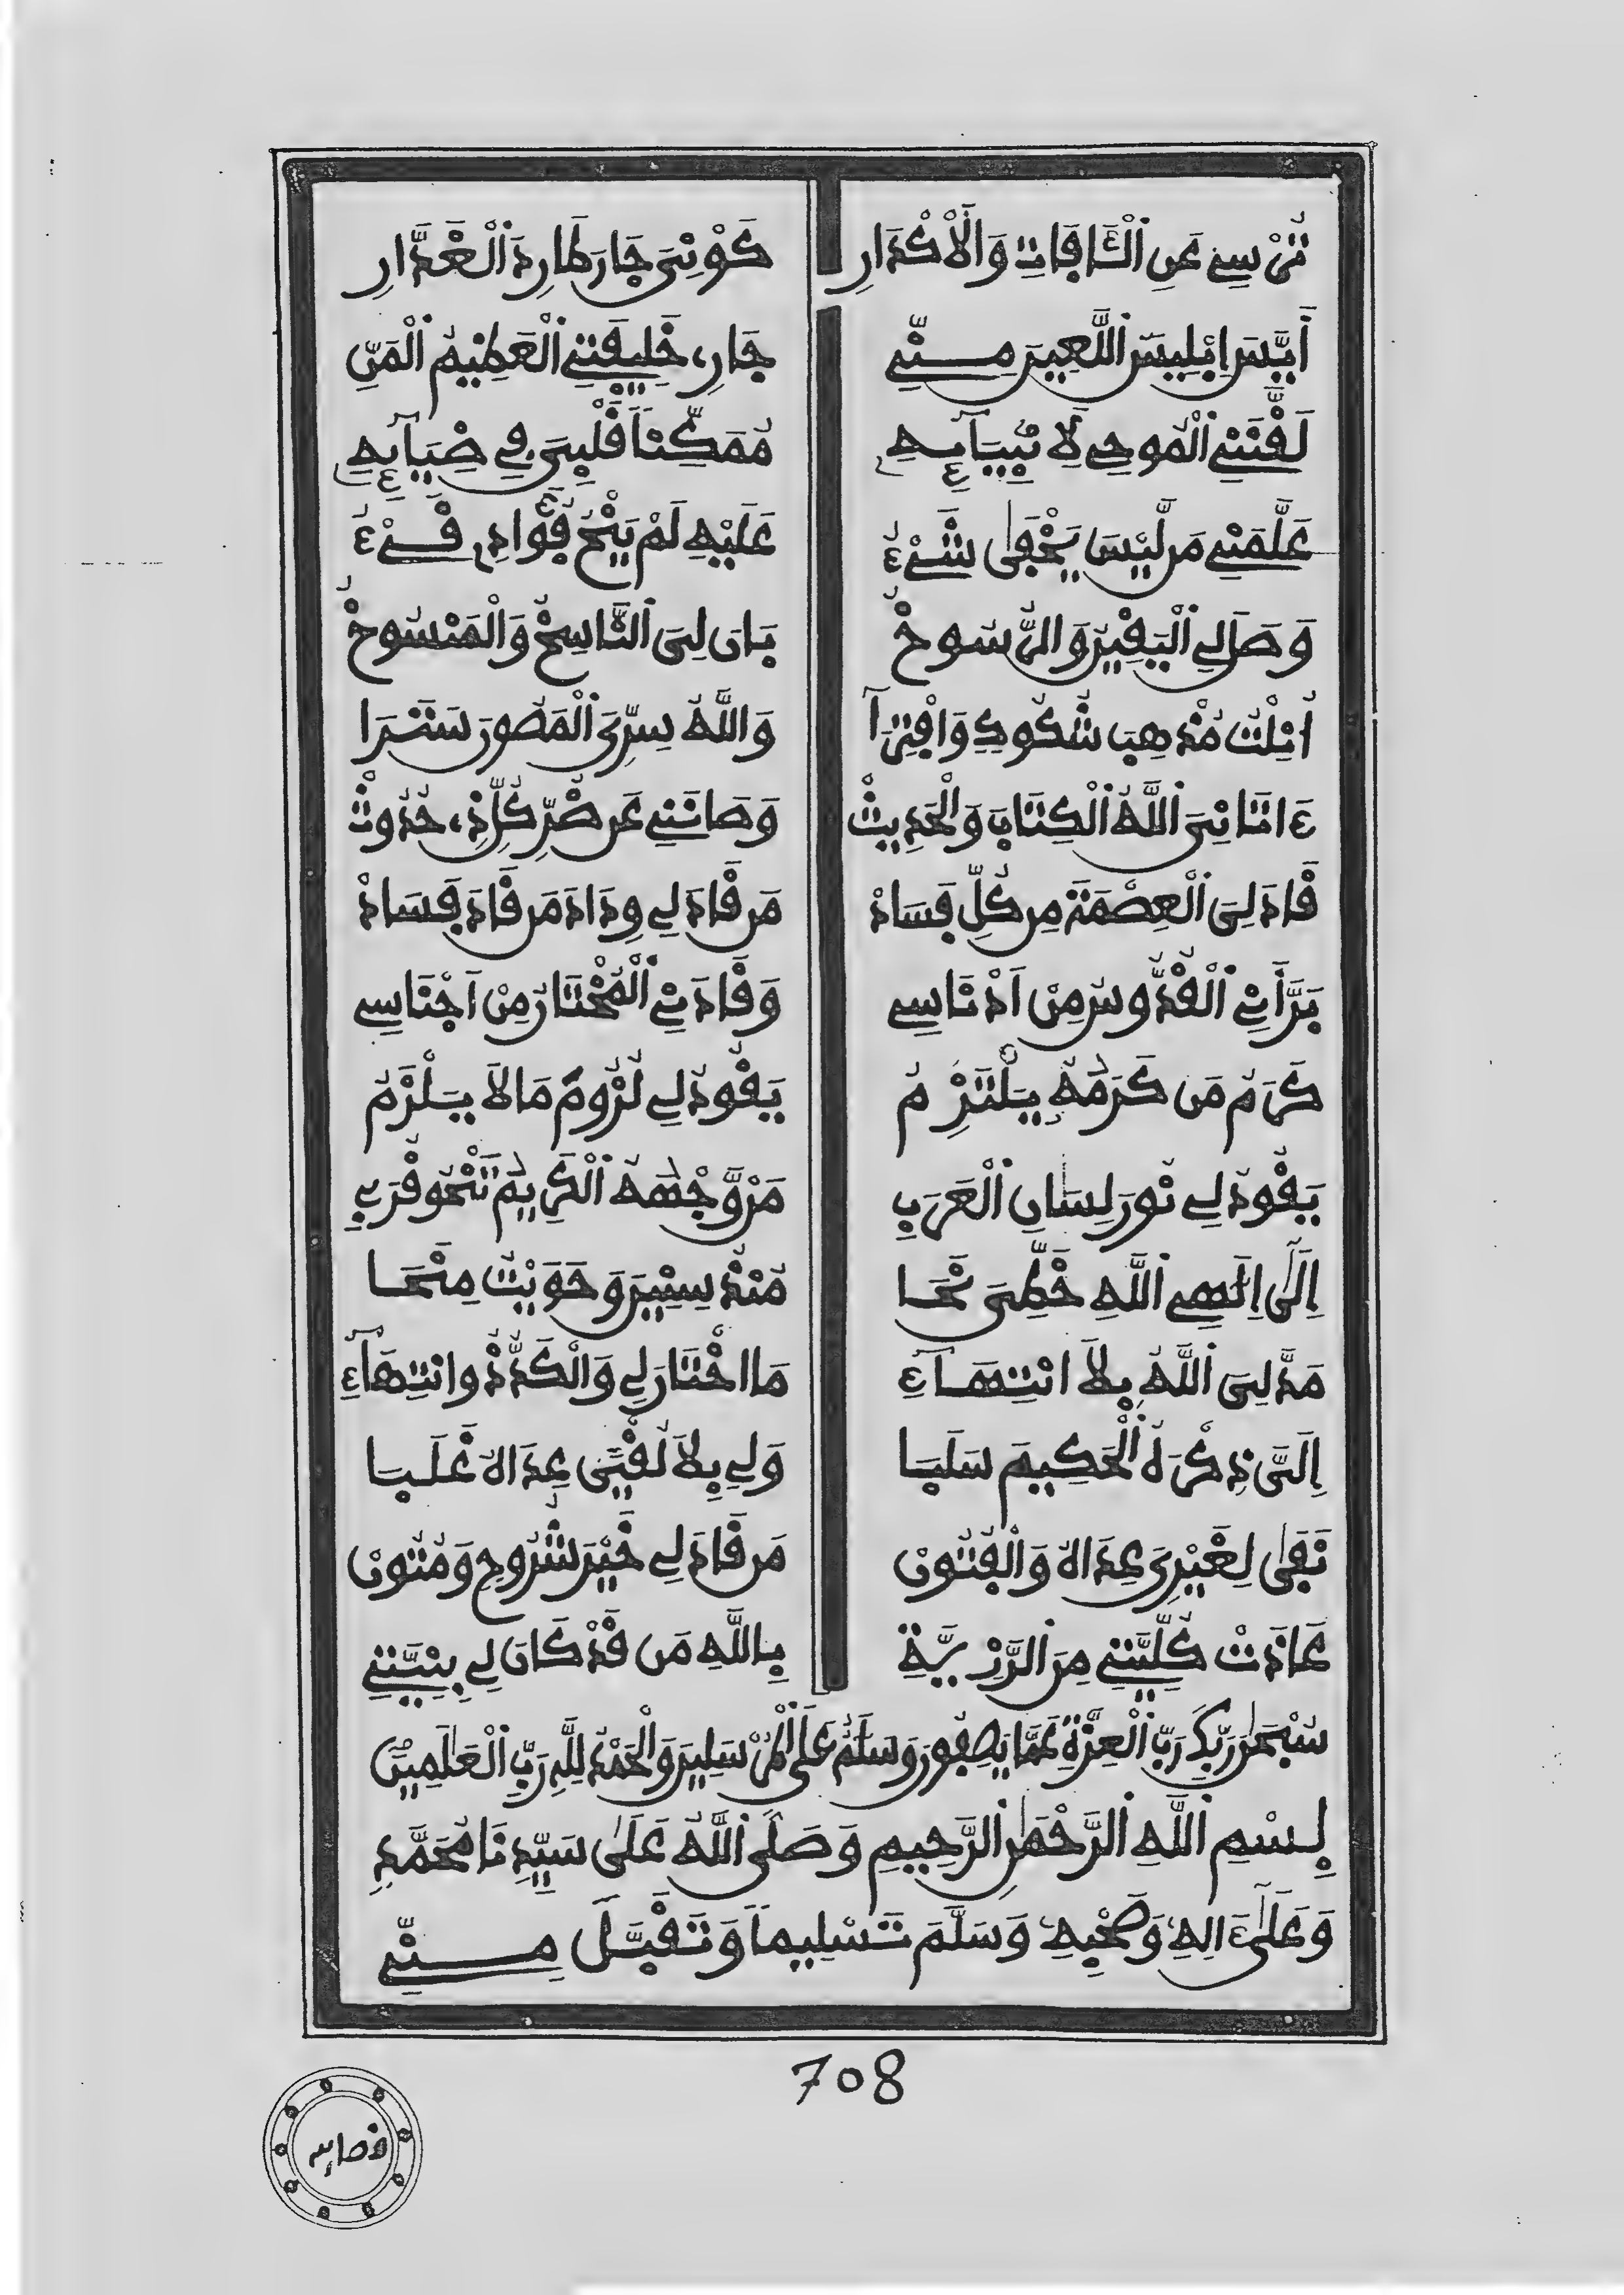 تُرْسِے عَنِ الْـَٔافَاتِ وَالْأَكْدَارِ كَوْنِىَ جَارَ طَارِدَ الْغَدَّارِ
أَيَّسَ إِبْلِيسَ اللَّعِينَ مِنِّے جَارِ، خَلِيفَتِے الْعَظِيمُ الْمَنِّ
لَقَّنَنِے الْمُوحِے لِأَنْبِيَآئِهِ مُمَكِّناً قَلْبِىَ فِى ضِيَآئِهِ
عَلَّمَنِے مَن لَّيْسَ يَخْفَى شَےْءُ عَلَيْهِ لَمْ يَنْحُ فُؤَادِ، فَےْءُ
وَصَلَ لِے الْيَقِينُ وَالرُّسُوخْ بَانَ لِىَ النَّاسِخُ وَالْمَنْسُوخْ
أَمِلْتُ مُذْهِبَ شُكُوكٍ وَافْتِرَآ وَاللَّهُ سِرِّىَ الْمَصُونَ سَتَرَا
ءَاتَانِىَ اللَّهُ الْكِتَابَ وَالْحَدِيثْ وَصَانَنِے عَن ضُرِّ كُلِّ ذِ، حُدُوثْ
قَادَ لِىَ الْعِصْمَةَ مِن كُلِّ فَسَادْ مَن قَادَ لِے وِدَادَ مَن قَادَ فَسَادْ
بَرَّأَنِے الْقُدُّوسُ مِنْ أَدْنَاسِے وَقَادَنِے الْمُخْتَارُ مِنْ أَجْنَاسِے
كَرَمُ مَن كَرَمُهُ يَلْتَزِمُ يَقُودُ لِے لُزُومَ مَا لَا يَلْزَمُ
يَقُودُ لِے نُورَ لِسَانِ الْعَرَبِ مَن وَّجْهُهُ الْكَرِيمُ تَنْحُو قُرَبِے
إِلَى إِلَهِے اللَّهِ خَطِّىَ نَحَا مُنْذُ سِنِينَ وَحَوَيْتُ مِنَحَا
مَدَّ لِىَ اللَّهُ بِلَا انْتِهَآءِ مَا اخْتَارَ لِے وَالْكَدُّ ذُو انْتِهَآءِ
إِلَىَّ ذِكْرُهُ الْحَكِيمُ سَلَبَا وَلِے بِلَا لُقْيَى عِدَاهُ غَلَبَا
نَفَى لِغَيْرِىَ عِدَاهُ وَالْفُتُونْ مَن قَادَ لِے خَيْرَ شُرُوحٍ وَمُتُونْ
عَاذَتْ كُلِّيَّتِے مِنَ الرَّزِيَّةِ بِاللَّهِ مَن قَدْ كَانَ لِے بِنِيَّتِے
سُبْحَنَ رَبِّكَ رَبِّ الْعِزَّةِ عَمَّا يَصِفُونَ وَسَلَمٌ عَلَى الْمُرْسَلِينَ وَالْحَمْدُ لِلَّهِ رَبِّ الْعَلَمِينَ
بِسْمِ اللَّهِ الرَّحْمَنِ الرَّحِيمِ وَصَلَّى اللَّهُ عَلَى سَيِّدِنَا مُحَمَّدٍ
وَعَلَى ءَالِهِ، وَصَحْبِهِ، وَسَلَّمَ تَسْلِيماً وَتَقَبَّلَ مِنِّے
708